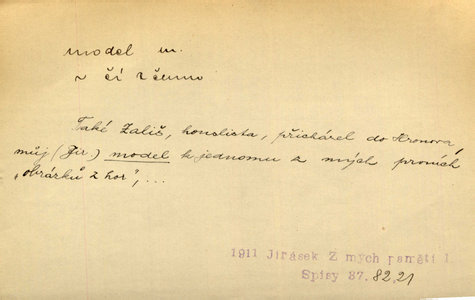 model m.
~ čí z čeho
Také Žališ, houslista, přicházel do Hronova,
můj (Jir) model k jednomu z mých prvních
„obrázků z hor", ...
1911 Jirásek Z mých pamětí I.
Spisy 37. 82,21